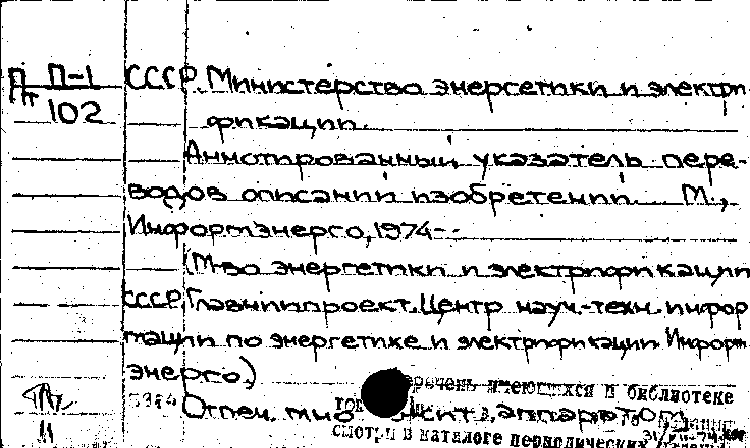 П П-1 СССР. Министерство энергетики и электри-
102 фикации.
Аннотированный указатель пере-
водов описаний изобретений. М.,
Информэнерго, 1974--
(М-во энергетики и электрификации
СССР, Главниипроект, Центр науч.-техн. инфор
мации по энергетике и электрификации Информ
энерго.)
Перечень имеющихся в библиотеке
Отпеч. множит. аппаратом
смотри в каталоге периодических